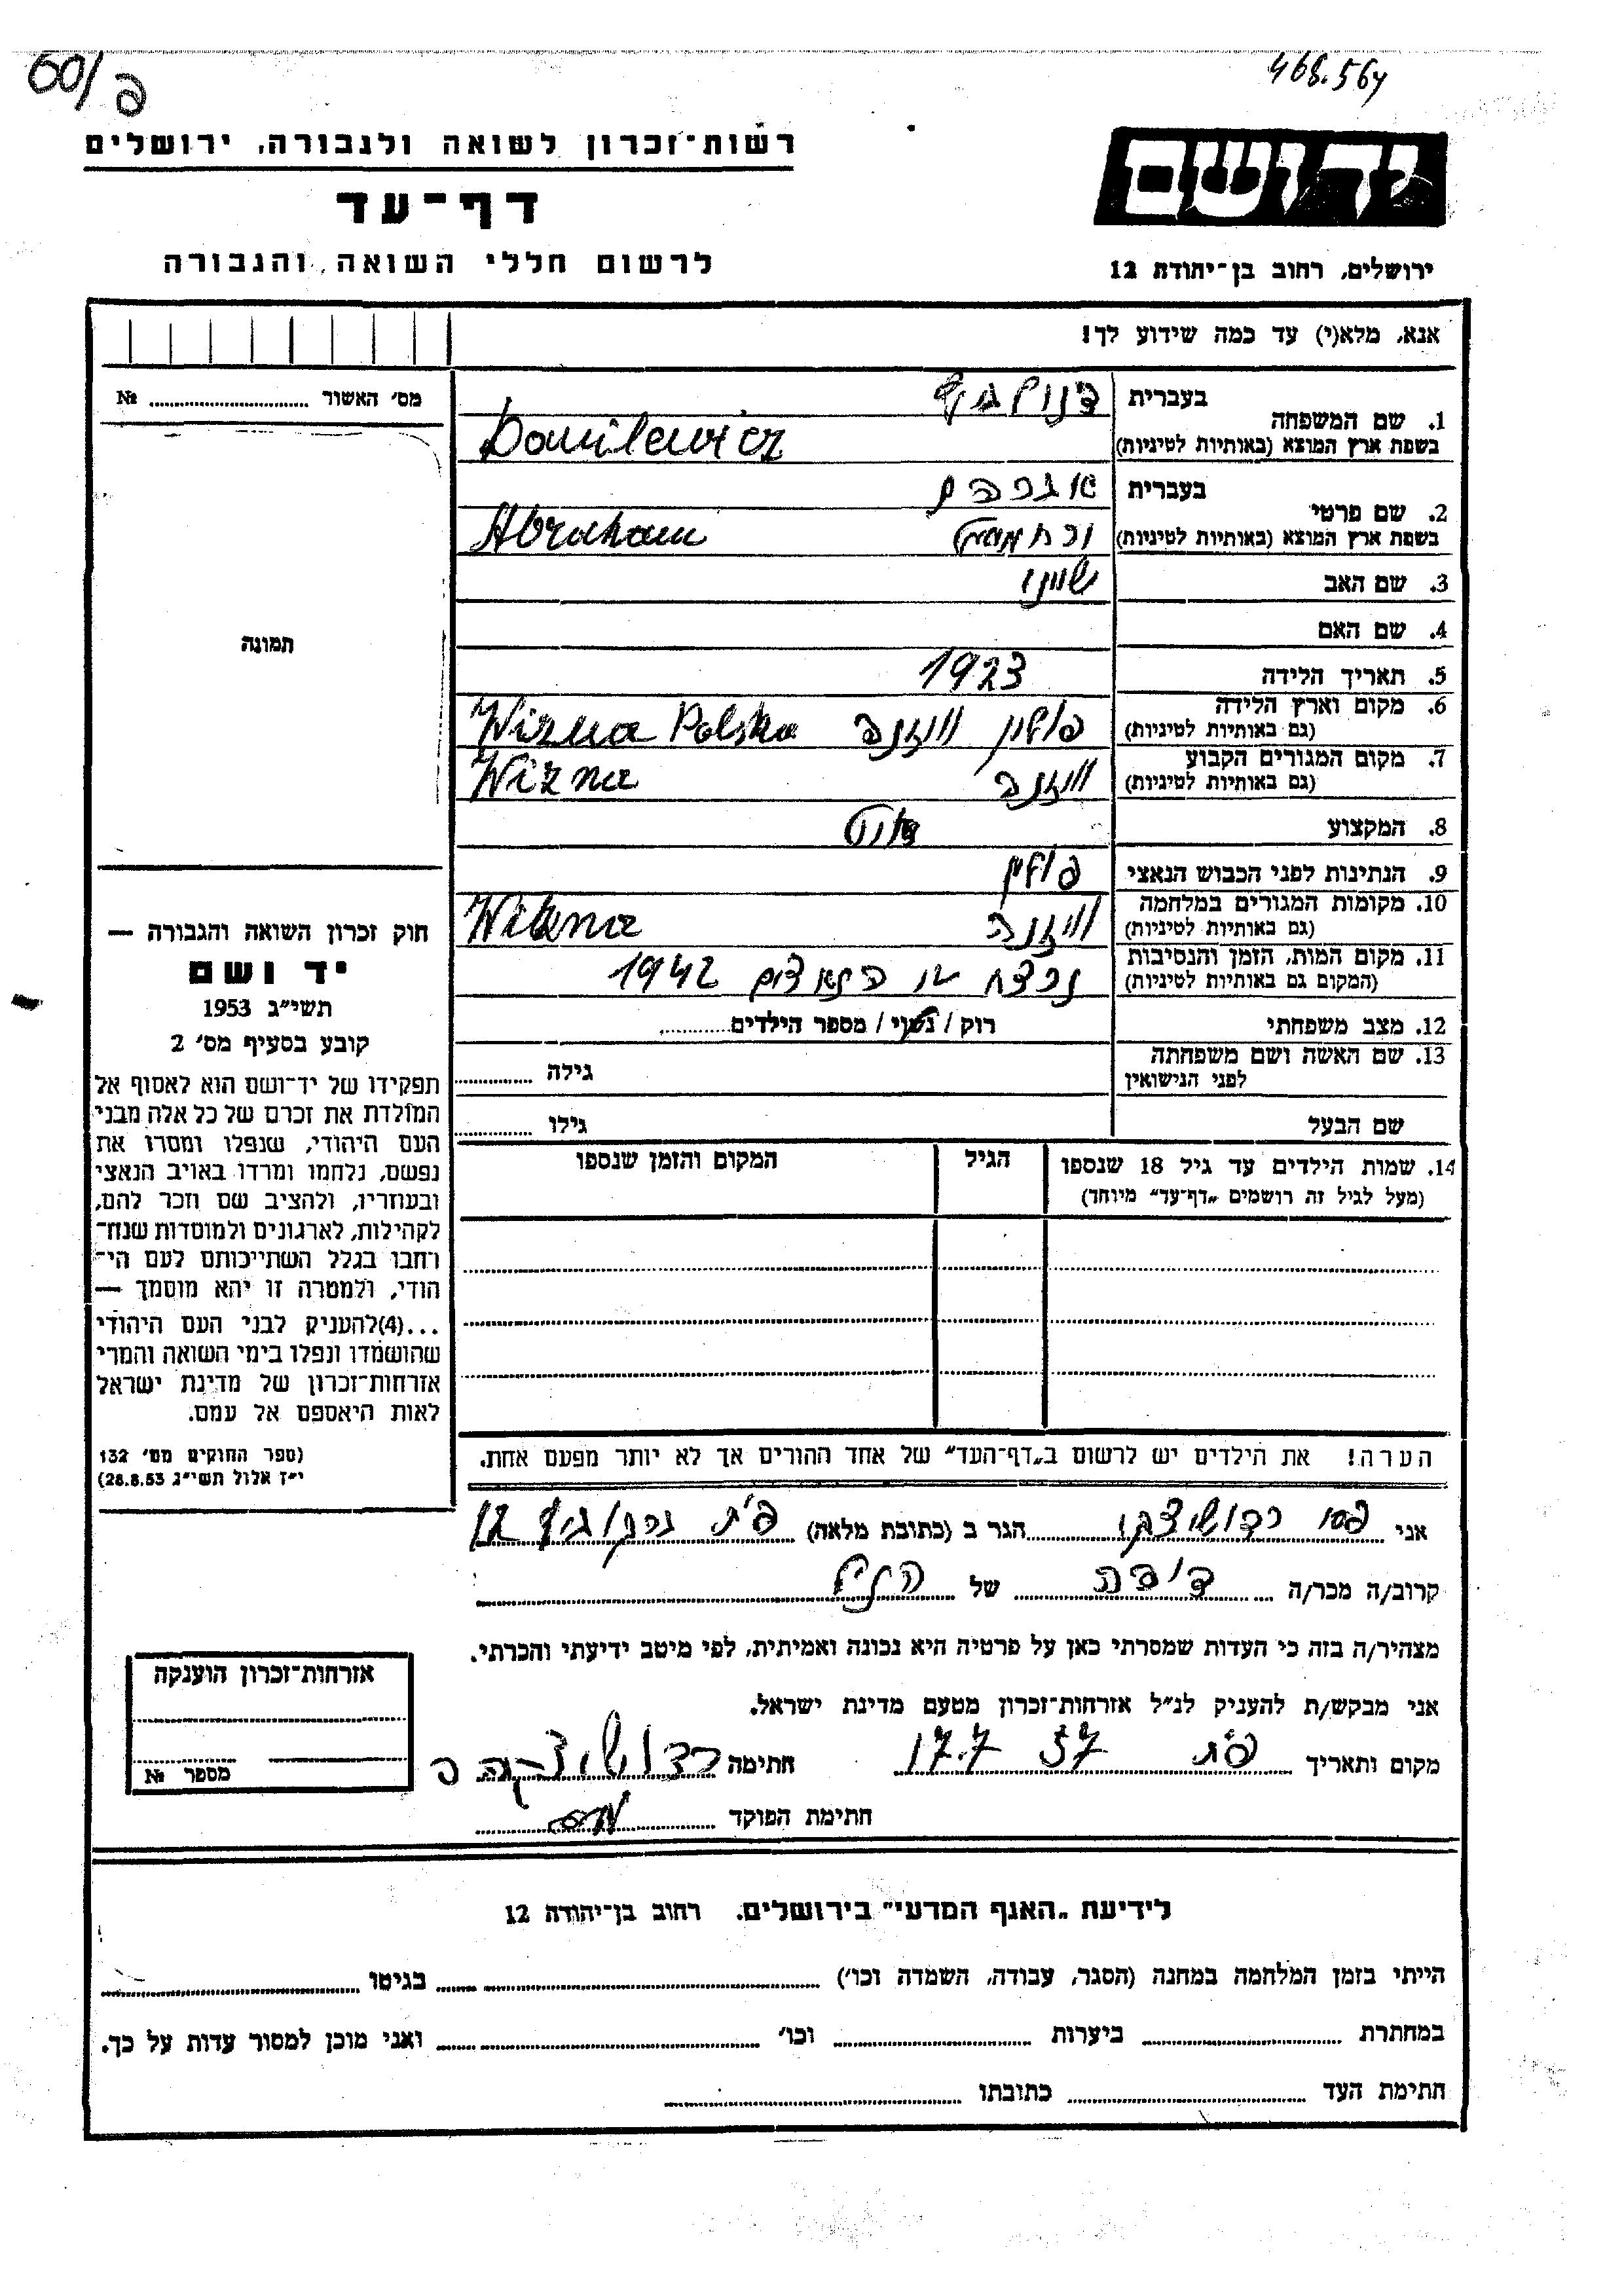 60/פ
468.564
רשות־זכרון לשואה ולגבורה, ירושלים
יד ושם
דף־עד
לרשום חללי השואה והגבורה
ירושלים, רחוב בן־יהודה 12
אנא, מלא(י) עד כמה שידוע לך!
מס׳ האשור № ..........
1. שם המשפחה
בעברית
בשפת ארץ המוצא (באותיות לטיניות)
Danilewicz
2. שם פרטי
בעברית אברהם
בשפת ארץ המוצא (באותיות לטיניות) Abraham
3. שם האב
4. שם האם
5. תאריך הלידה 1923
6. מקום וארץ הלידה
(גם באותיות לטיניות) פולין וויזנה Wizna Polska
7. מקום המגורים הקבוע
(גם באותיות לטיניות) וויזנה Wizna
8. המקצוע
9. הנתינות לפני הכבוש הנאצי פולין
10. מקומות המגורים במלחמה
(גם באותיות לטיניות) וויזנה Wizna
11. מקום המות, הזמן והנסיבות
(המקום גם באותיות לטיניות) נרצח 1942
12. מצב משפחתי רוק / נשוי / מספר הילדים ..........
13. שם האשה ושם משפחתה
לפני הנישואין
גילה ..........
שם הבעל גילו ..........
14. שמות הילדים עד גיל 18 שנספו
(מעל לגיל זה רושמים „דף־עד״ מיוחד)
הגיל
המקום והזמן שנספו
הערה! את הילדים יש לרשום ב„דף־העד״ של אחד ההורים אך לא יותר מפעם אחת.
תמונה
חוק זכרון השואה והגבורה —
יד ושם
תשי״ג 1953
קובע בסעיף מס׳ 2
תפקידו של יד־ושם הוא לאסוף אל
המולדת את זכרם של כל אלה מבני
העם היהודי, שנפלו ומסרו את
נפשם, נלחמו ומרדו באויב הנאצי
ובעוזריו, ולהציב שם וזכר להם,
לקהילות, לארגונים ולמוסדות שנח־
רחבו בגלל השתייכותם לעם הי־
הודי, ולמטרה זו יהא מוסמך —
...(4)להעניק לבני העם היהודי
שהושמדו ונפלו בימי השואה והמרי
אזרחות־זכרון של מדינת ישראל
לאות היאספם אל עמם.
(ספר החוקים מס׳ 132
י״ז אלול תשי״ג 28.8.53)
אני הגר ב (כתובת מלאה) פ״ת
קרוב/ה מכר/ה דודה של הנ״ל
מצהיר/ה בזה כי העדות שמסרתי כאן על פרטיה היא נכונה ואמיתית, לפי מיטב ידיעתי והכרתי.
אני מבקש/ת להעניק לנ״ל אזרחות־זכרון מטעם מדינת ישראל.
מקום ותאריך פ״ת 17.7 57 חתימה
חתימת הפוקד
אזרחות־זכרון הוענקה
מספר №
לידיעת „האגף המדעי״ בירושלים, רחוב בן־יהודה 12
הייתי בזמן המלחמה במחנה (הסגר, עבודה, השמדה וכו׳) .......... בגיטו ..........
במחתרת .......... ביערות .......... וכו׳ .......... ואני מוכן למסור עדות על כך.
חתימת העד .......... כתובתו ..........